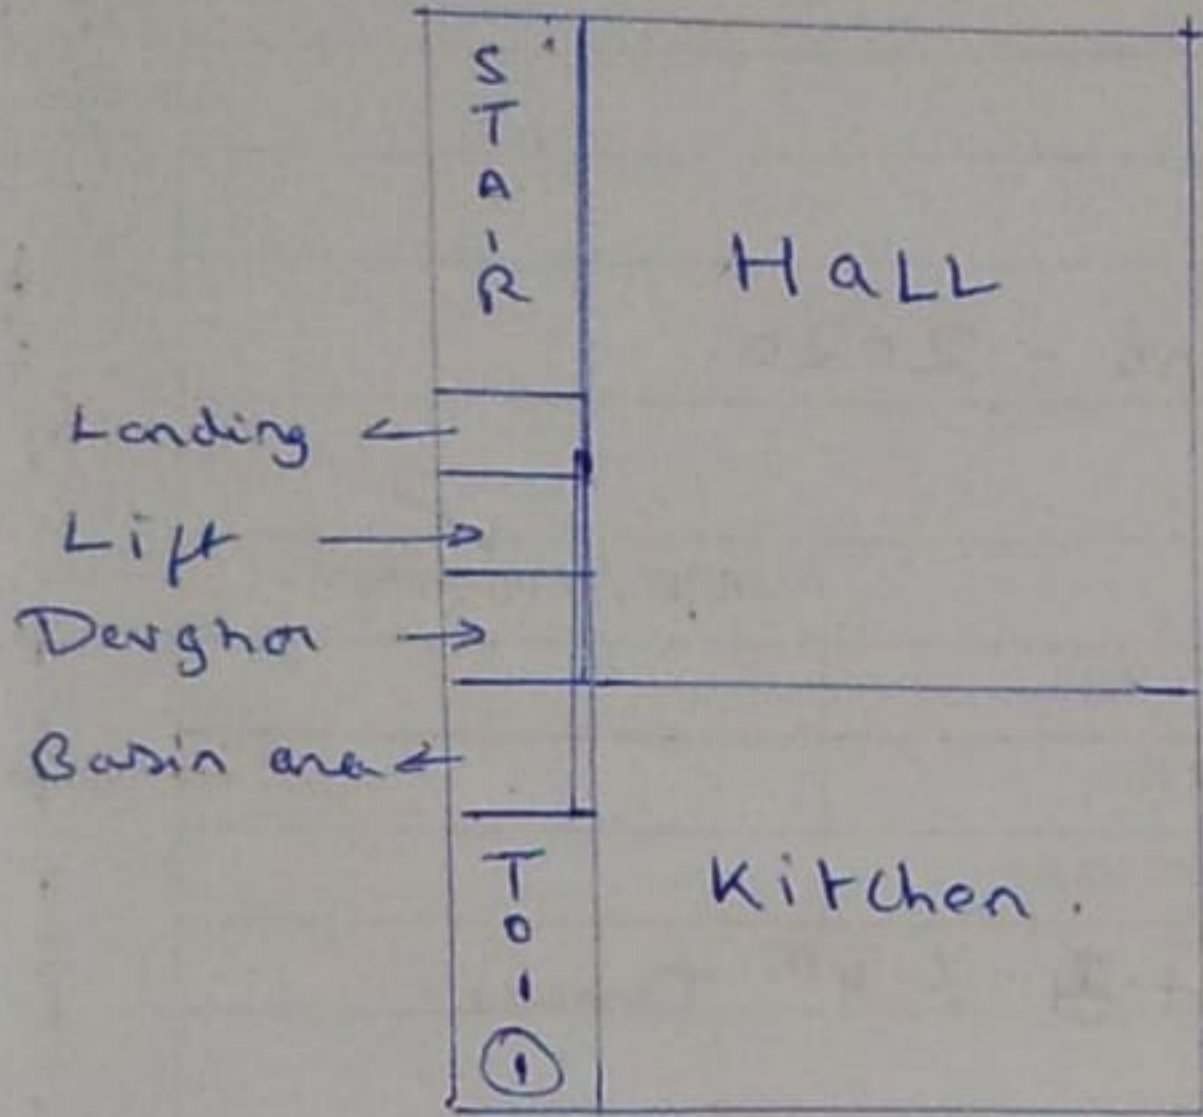 STAIR
HaLL
Landing
Lift
Devghar
Basin area
Kitchen.
TOI
1